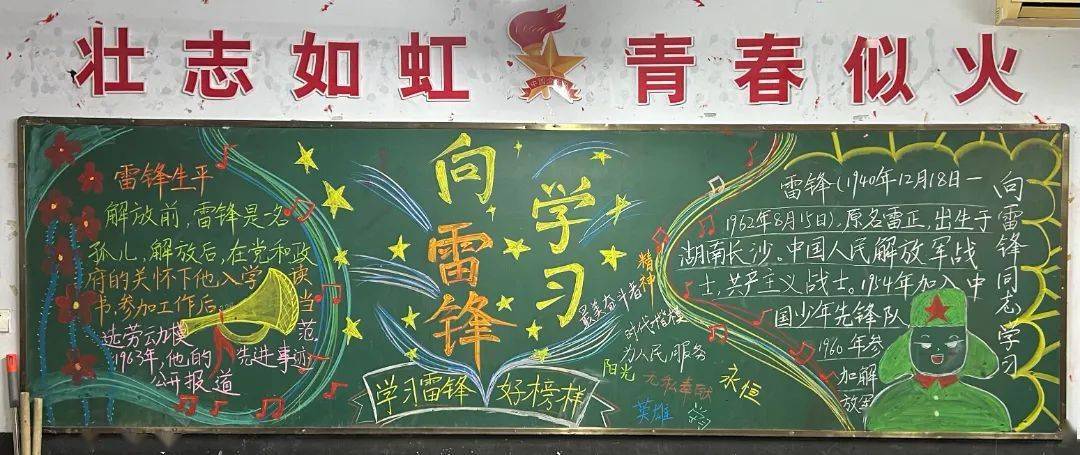 壮志如虹 青春似火
雷锋生平
解放前,雷锋是名
孤儿,解放后,在党和政
府的关怀下他入学读
书.参加工作后 当
选劳动模 范
1963年,他的 先进事迹
公开报道
向
雷锋
学习
学习雷锋 好榜样
精神
最美奋斗者
时代楷模
为人民服务
阳光
永恒
英雄
雷锋(1940年12月18日一
1962年8月15日),原名雷正,出生于
湖南长沙。中国人民解放军战
士,共产主义战士。1954年加入中
国少年先锋队
1960年参
加解
放军
向雷锋同志学习